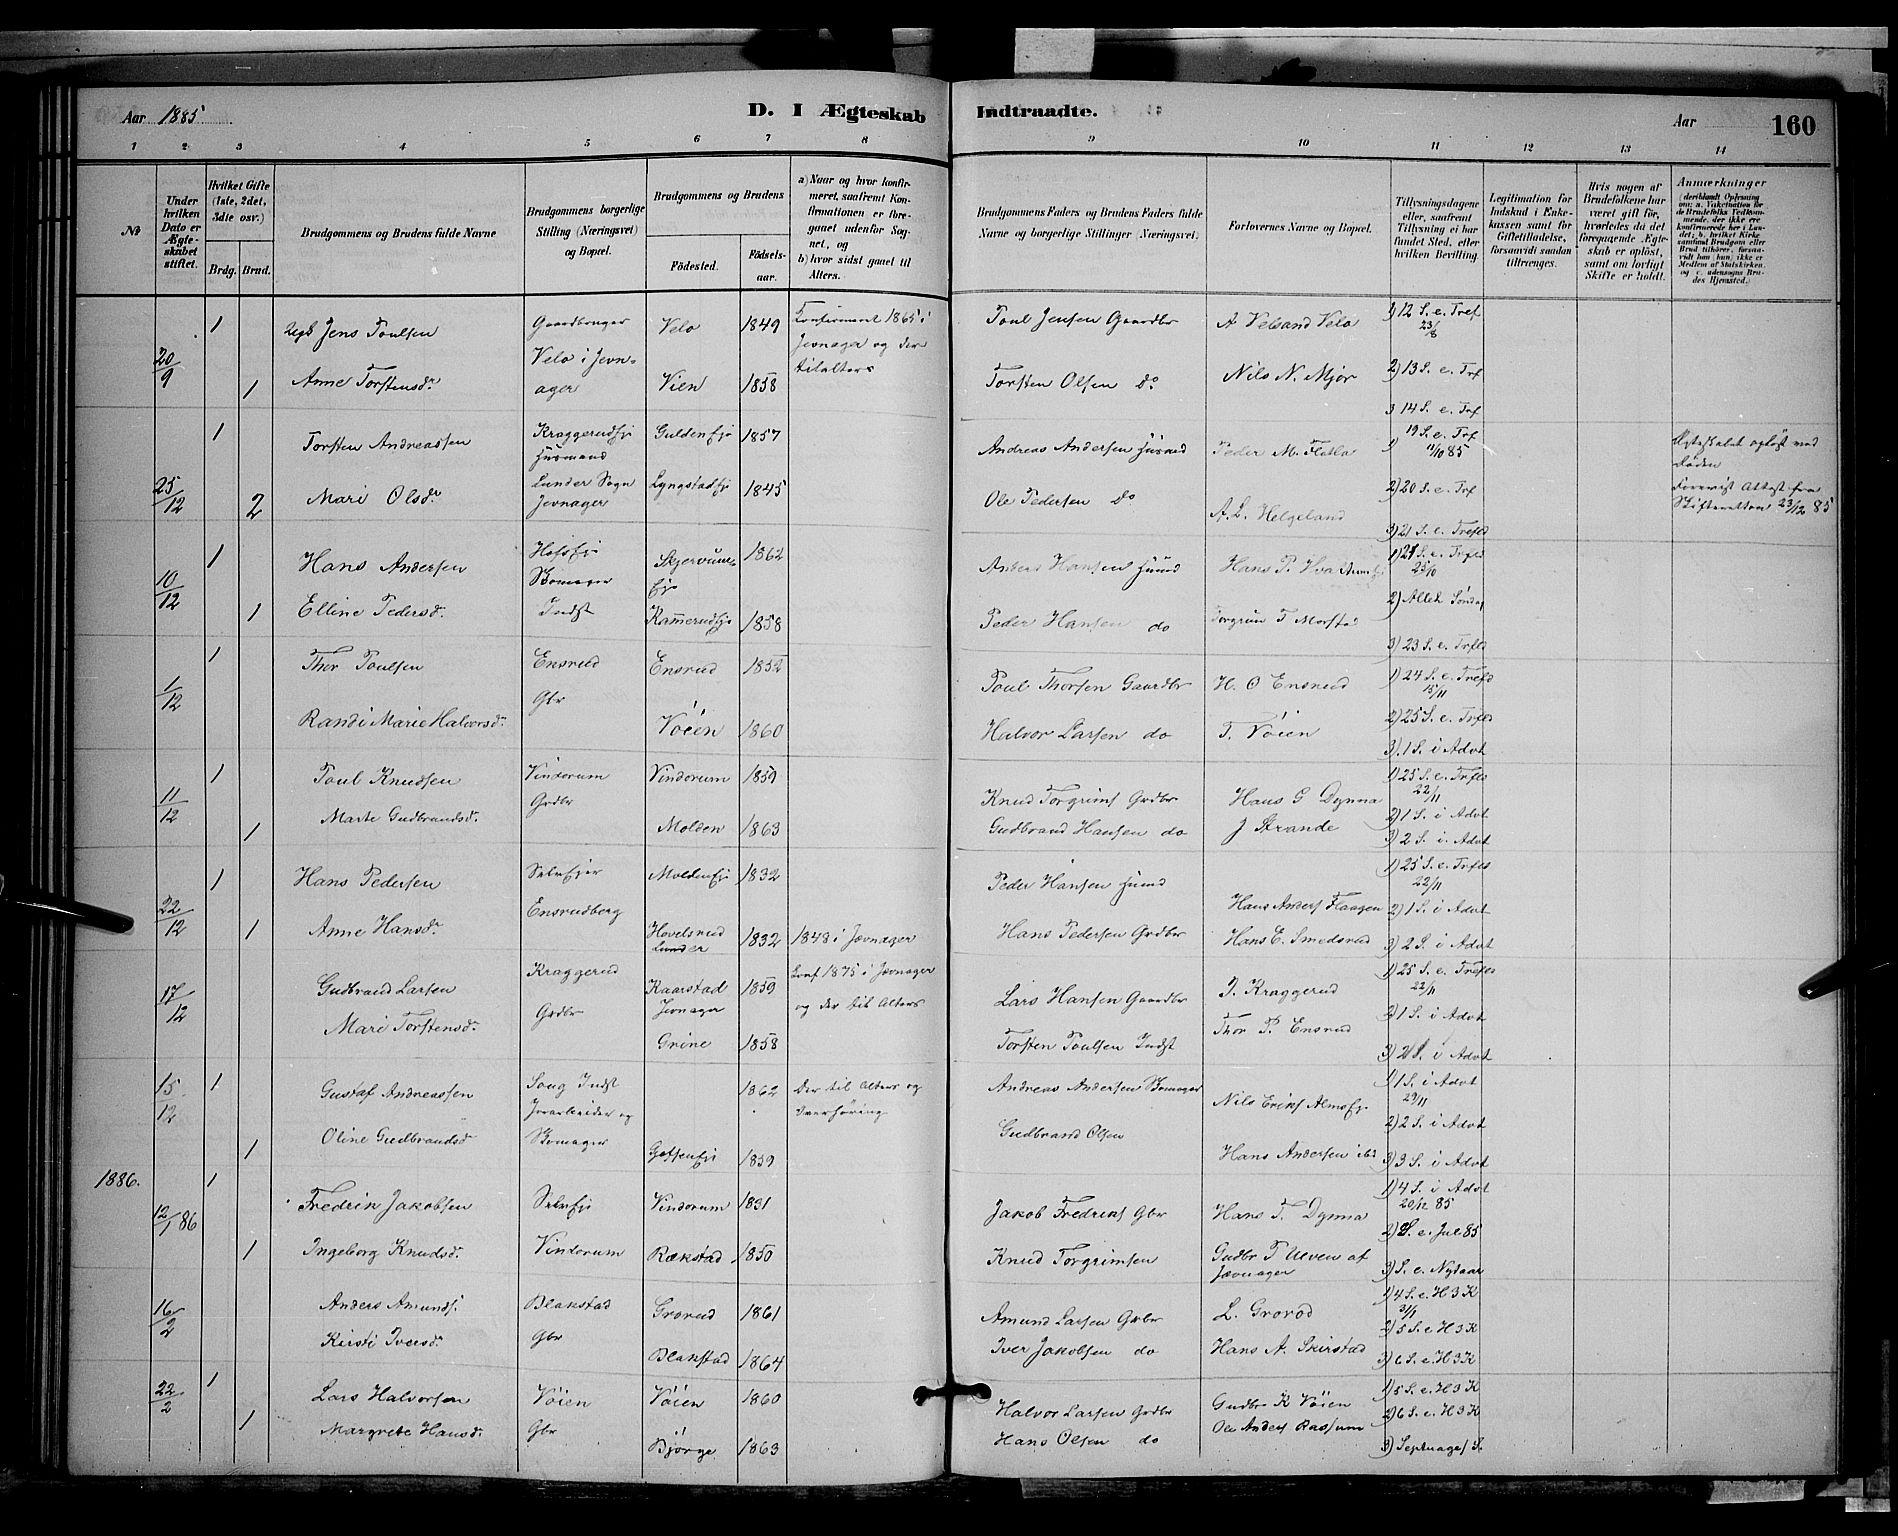 Aar 1885
D. I Ægteskab Indtraadte.
Aar 160
1 2 3 4 5 6 7 8 9 10 11 12 13 14
No
Under hvilken Dato er Ægteskabet stiftet.
Hvilket Gifte (1ste, 2det, 3die osv.)
Brdg. Brud.
Brudgommens og Brudens fulde Navne
Brudgommens borgerlige Stilling (Næringsvei) og Bopæl.
Brudgommens og Brudens
Fødested. Fødselsaar.
a) Naar og hvor konfirmeret, saafremt Konfirmationen er foregaaet udenfor Sognet, og
b) hvor sidst gaaet til Alters.
Brudgommens Faders og Brudens Faders fulde Navne og borgerlige Stillinger (Næringsvei).
Forlovernes Navne og Bopæl.
Tillysningsdagene eller, saafremt Tillysning ei har fundet Sted, efter hvilken Bevilling.
Legitimation for Indskud i Enkekassen samt for Giftetilladelse, forsaavidt saadan tiltrænges.
Hvis nogen af Brudefolkene har været gift før, hvorledes da det foregaaende Ægteskab er opløst, samt om lovligt Skifte er holdt.
Anmærkninger
20/9 1 Jens Poulsen Gaardbruger Velo 1849 Konfirmeret 1865 i Poul Jensen Gaardbr A Velsand Velo 1) 12 S. e. Tref 23/8
Velo i Jevn- Jevnager og der
1 Anne Torstensdr ager Vien 1858 tilalters Torsten Olsen do Nils N. Mjør 2) 13 S. e. Trf
3 14 S. e. Trf
25/12 1 Torsten Andreassen Kraggerudej Guldenej 1857 Andreas Andersen Husmd Peder M. Flatla 1) 19 S. e. Trf 11/10 85 Ægteskabet opløst ved
Husmand Døden
2 Mari Olsdr Lunder Sogn Lyngstadej 1845 Ole Pedersen do A. L. Helgeland 2) 20 S. e. Trf Forevist Attest fra
Jevnager 3) 21 S. e. Trefd Skifteretten 23/12 85
10/12 1 Hans Andersen Skomager 1862 Anders Hansen Husmd Hans P. 1) 21 S. e. Trfld 25/10
1 Elline Pedersdr Indst Kammerudej 1858 Peder Hansen do Torgrim T Morstad 2) Alleh Søndag
3) 23 S. e. Trfld
1/12 1 Thor Poulsen Ensrud Ensrud 1852 Poul Thorsen Gaardbr H. O Ensrud 1) 24 S. e. Trefd 15/11
Randi Marie Halvorsdr Gbr Vøien 1860 Halvor Larsen do T. Vøien 2) 25 S. e. Trfld
3) 1 S. i Advt
11/12 1 Poul Knudsen Vindorum Vindorum 1859 Knud Torgrims Grdbr Hans G Dynna 1) 25 S. e. Trfld 22/11
1 Marte Gudbrandsdr. Grdbr Molden 1863 Gudbrand Hansen do J Strande 2) 1 S. i Advt
3) 2 S. i. Advt
22/12 1 Hans Pedersen Selvejer Moldenej 1832 Peder Hansen Husmd Hans Anders Flaagen 1) 25 S. e. Trfld 22/11
Ensrudberg 2) 1 S. i Advt
1 Anne Hansdr Hovelsrud Lunder 1832 1848 i Jævnager Hans Pedersen Grdbr Hans E. Smedsrud 3) 2 S. i Advt
17/12 Gudbrand Larsen Kraggerud Kaarstad Jevnager 1859 Konf 1875 i Jævnager Lars Hansen Gaardbr J. Kraggerud 1) 25 S. e. Trefd 22/11
Mari Torstensdr. Grdbr Grine 1858 og der til Alters Torsten Poulsen Indst Thor P. Ensrud 2) 1 S. i Advt
3) 2 S. i Advt
15/12 1 Gustaf Andreassen Soug Indst 1862 Der til Alters og Andreas Andersen Skomager Nils Eriks Almsej 1) 1 S. i Advt 29/11
Jernarbeider og Overhøring 2) 2 S. i Advt
1 Oline Gudbrandsdr Skomager 1859 Gudbrand Olsen Hans Andersen ibd 3) 3 S. i Advt
1886.
12/1 86 1 Fredrik Jakobsen Selvej Vindorum 1831 Jakob Fredriks Gbr Hans T. Dynna 1) 4 S. i Advt 20/12 85
2) S. e. Jul 85
1 Ingeborg Knudsdr Vindorum Rækstad 1850 Knud Torgrimsen Gudbr T Ulven af Jævnager 3) S. e. Nytaar
16/2 Anders Amunds. Blakstad Grorud 1861 Amund Larsen Grdbr L. Grorod 1) 4 S. e. H 3 K 31/1
Kirsti Iversdr Gbr Blakstad 1864 Iver Jakobsen do Hans A. Skirstad 2) 5 S. e H 3 K
3) 6 S. e. H 3 K
22/2 1 Lars Halvorsen Vøien Vøien 1860 Halvor Larsen Grdbr Gudbr K Vøien 1) 5 S. e. H 3 K
1 Margrete Hansdr. Gbr Bjørge 1863 Hans Olsen do Ole Anders Rassum 2) 6 S. e. H 3 K
3) Septuages S.